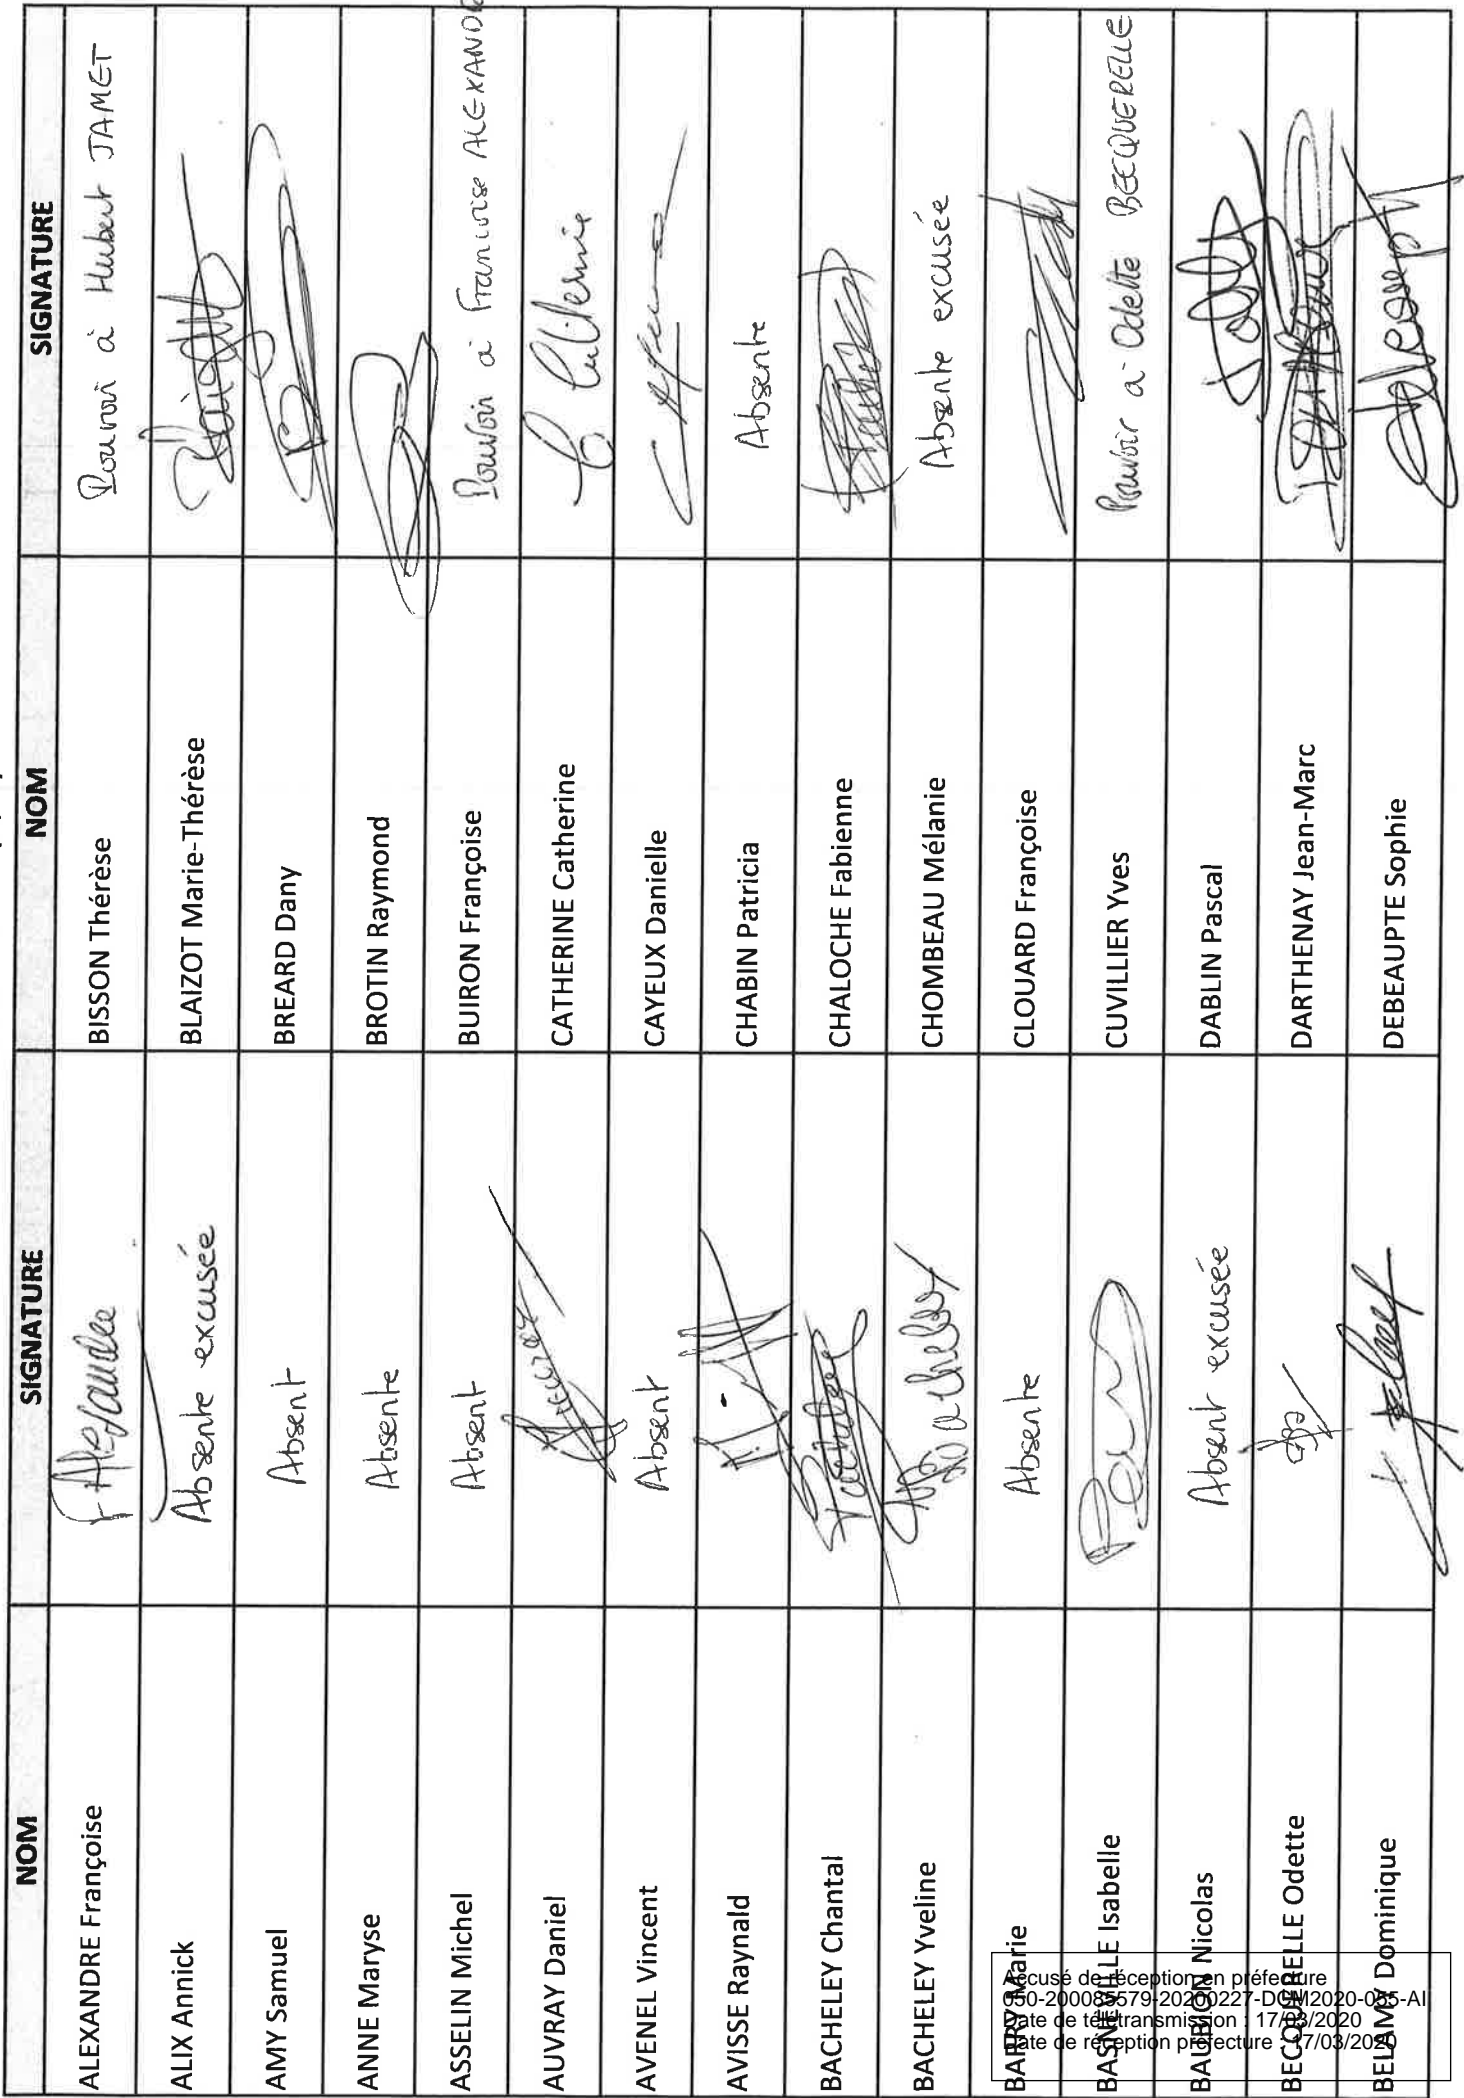 NOM SIGNATURE NOM SIGNATURE
ALEXANDRE Françoise BISSON Thérèse Pouvoir à Hubert JAMET
ALIX Annick Absente excusée BLAIZOT Marie-Thérèse
AMY Samuel Absent BREARD Dany
ANNE Maryse Absente BROTIN Raymond
ASSELIN Michel Absent BUIRON Françoise Pouvoir à Francoise ALEXANDR
AUVRAY Daniel CATHERINE Catherine
AVENEL Vincent Absent CAYEUX Danielle
AVISSE Raynald CHABIN Patricia Absente
BACHELEY Chantal CHALOCHE Fabienne
BACHELEY Yveline CHOMBEAU Mélanie Absente excusée
BARRY Marie Absente CLOUARD Françoise
BASNEVILLE Isabelle CUVILLIER Yves Pouvoir à Odette BECQUERELLE
BAUBION Nicolas Absent excusée DABLIN Pascal
BECQUERELLE Odette DARTHENAY Jean-Marc
BELAMY Dominique DEBEAUPTE Sophie
Accusé de réception en préfecture
050-200085579-20200227-DCM2020-035-AI
Date de télétransmission : 17/03/2020
Date de réception préfecture : 17/03/2020